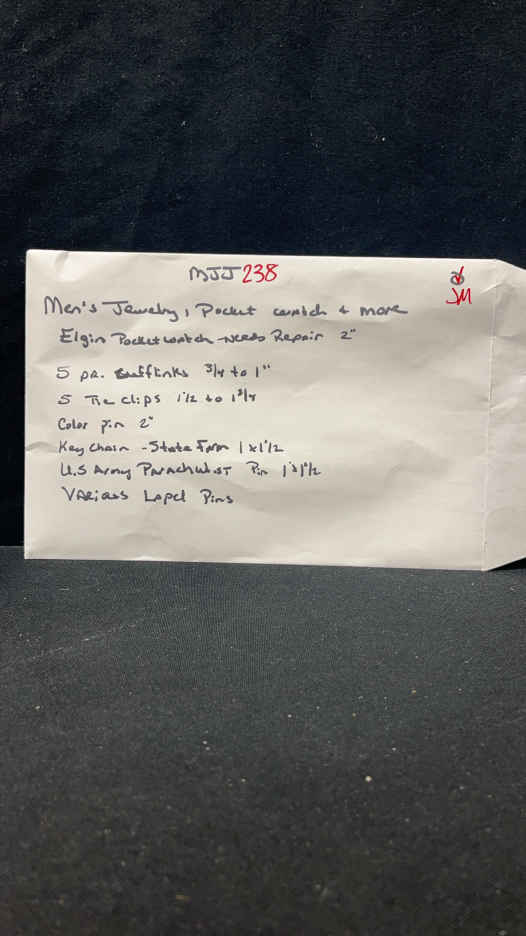 MJJ 238
JM
Men's Jewelry, Pocket watch & more
Elgin Pocket watch - Needs Repair 2"
5 pr. Cufflinks 3/4 to 1"
5 Tie clips 1 1/2 to 1 3/4
Color Pin 2"
Key Chain - State Farm 1 x 1 1/2
U.S Army Parachutist Pin 1 x 1 1/2
Various Lapel Pins